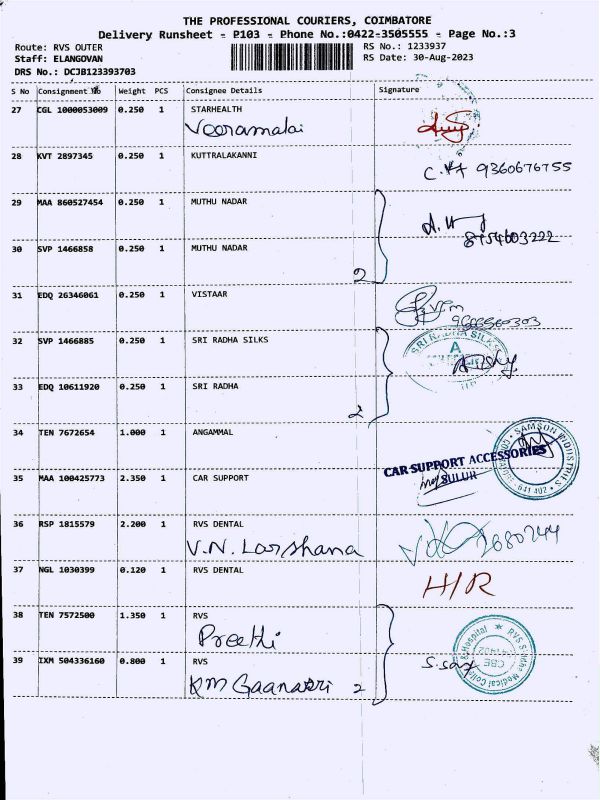 THE PROFESSIONAL COURIERS, COIMBATORE
Delivery Runsheet - P103 - Phone No.:0422-3505555 - Page No.:3
Route: RVS OUTER RS No.: 1233937
Staff: ELANGOVAN RS Date: 30-Aug-2023
DRS No.: DCJB123393703
S No Consignment No Weight PCS Consignee Details Signature
27 CGL 1000053009 0.250 1 STARHEALTH
Veeramalai
28 KVT 2897345 0.250 1 KUTTRALAKANNI
9360676755
29 MAA 860527454 0.250 1 MUTHU NADAR
30 SVP 1466858 0.250 1 MUTHU NADAR
2
31 EDQ 26346061 0.250 1 VISTAAR
32 SVP 1466885 0.250 1 SRI RADHA SILKS
SRI RADHA SILKS
A
33 EDQ 10611920 0.250 1 SRI RADHA
2
34 TEN 7672654 1.000 1 ANGAMMAL
SAMSON INDUSTRIES
641 402
35 MAA 100425773 2.350 1 CAR SUPPORT
CAR SUPPORT ACCESSORIES
SULUR
36 RSP 1815579 2.200 1 RVS DENTAL
V.N. Larshana
2680744
37 NGL 1030399 0.120 1 RVS DENTAL
H/R
38 TEN 7572500 1.350 1 RVS
Preethi
39 IXM 504336160 0.800 1 RVS
2
RVS Medical College & Hospital
CBE